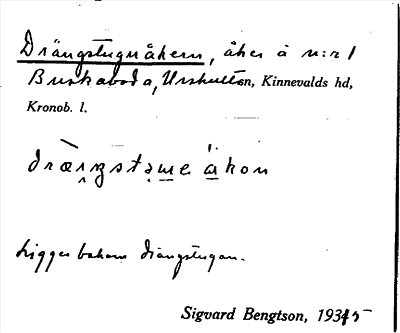 Drängstuguåkern, åker å n:r 1
Buskaboda, Urshult sn, Kinnevalds hd,
Kronob. l.
Ligger bakom drängstugan.
Sigvard Bengtson, 1935